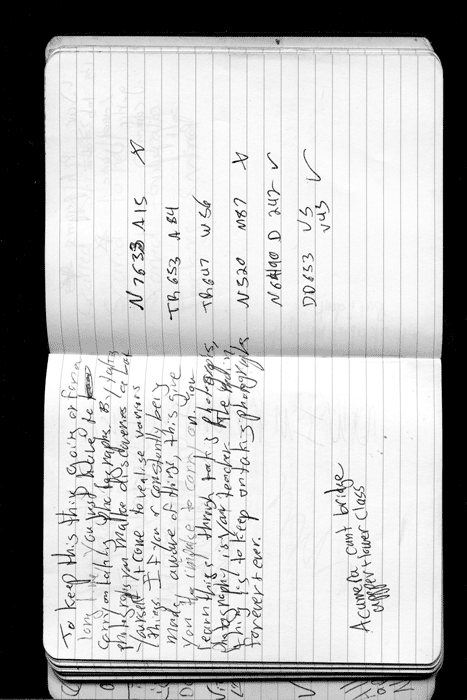 To keep this thing going on for a
long time you just have to
carry on taking photographs. By taking
photograph you make discoveries about
yourself & come to realise various
things. If you r constantly being
made aware of things, this give
you the impulse to carry on. You
learn this through taking photographs,
photography is your teacher. The
thing is to keep on taking photographs
forever & ever.
A camera cant bridge
upper & lower class
N7633 A15 X
TR653 A84
TR647 W56
N520 M87 X
D 242 ✓
DD653 U5 ✓